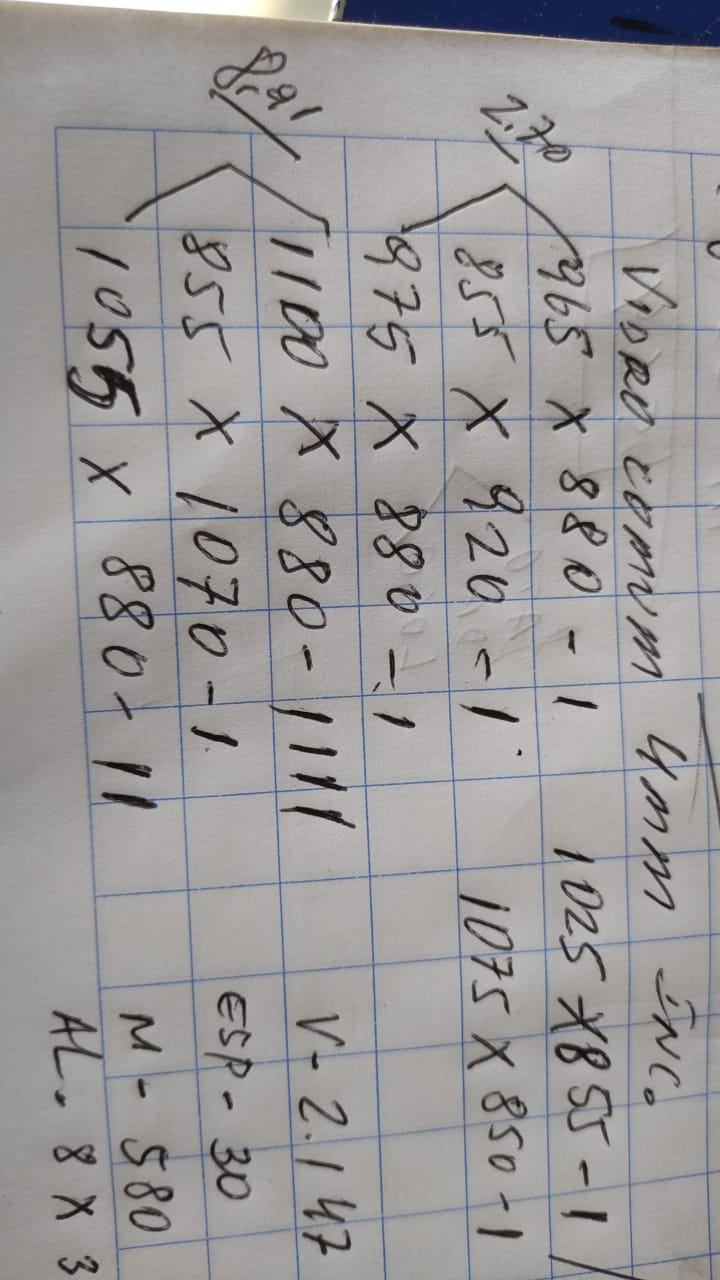 Vidro comum 4mm inc.
965 x 880 - 1
1025 x 855 - 1
855 x 920 - 1
1075 x 850 - 1
975 x 880 - 1
1100 x 880 - 1111
V - 2.147
855 x 1070 - 1
ESP - 30
1055 x 880 - 11
M - 580
AL. 8 x 3